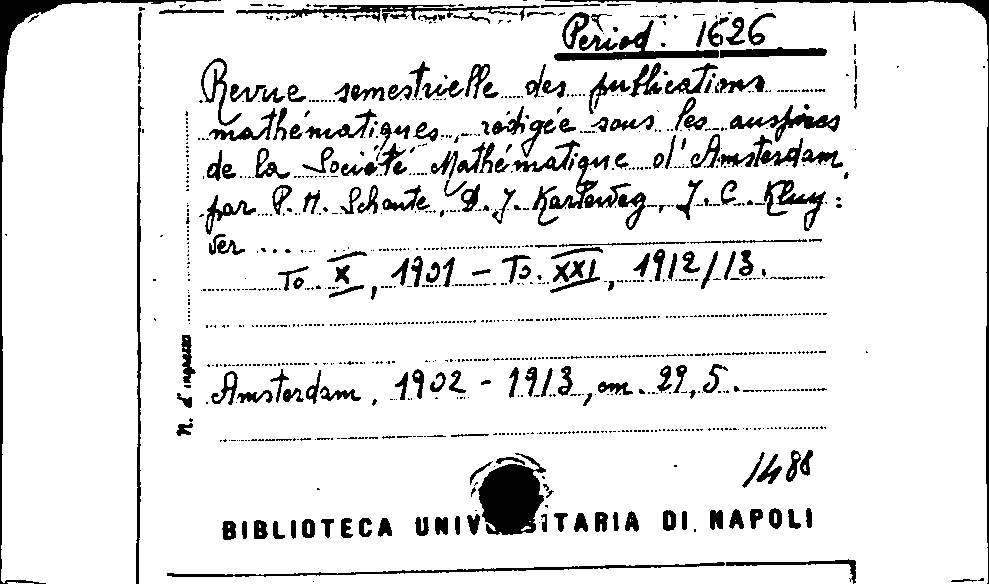 Period. 1626
Revue semestrielle des publications
mathématiques, rédigée sous les auspices
de la Société Mathématique d'Amsterdam,
par P. H. Schoute, D. J. Korteweg, J. C. Kluy:
ver ...
To. X, 1901 - To. XXI, 1912/13.
N. d'ingresso
Amsterdam, 1902 - 1913, cm. 29,5.
1488
BIBLIOTECA UNIVERSITARIA DI NAPOLI